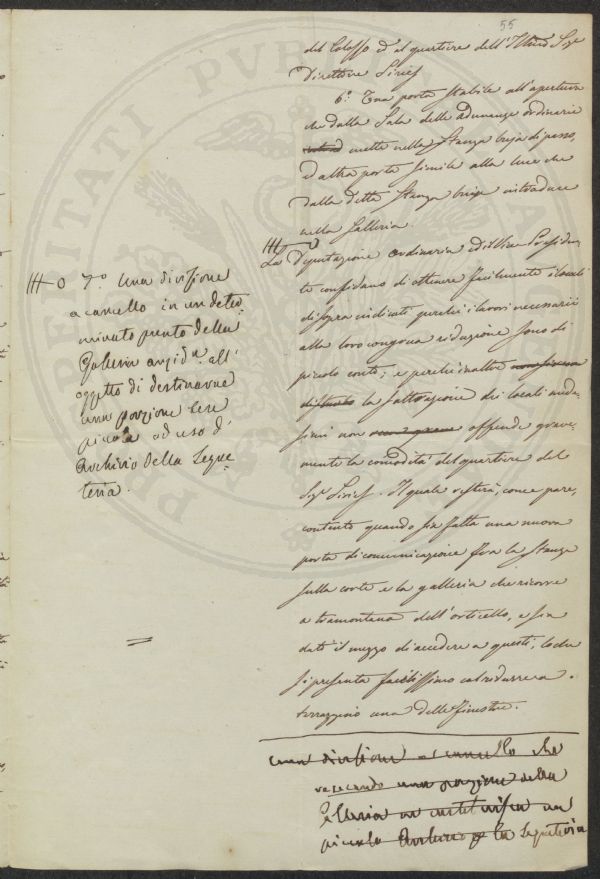 55
del Colosso ed al quartiere dell'Illmo Sige
Direttore Siries
6.° Una porta stabile all'apertura
che dalla Sala delle Adunanze ordinarie
mette nella Stanza buja di passo,
ed altra porta simile alla luce che
dalla detta Stanza buja introduce
nella Galleria.
La Deputazione ordinaria ed il Vice Presiden
te confidano di ottenere facilmente i locali
di sopra indicati perché i lavori necessarii
alla loro congrua riduzione sono di
piccolo conto; e perché inoltre
la sottrazione dei locali mede
simi non offende grave
mente la comodità del quartiere del
Sigr Siries. Il quale resterà, come pare,
contento quando sia fatta una nuova
porta di comunicazione fra la Stanza
sulla corte e la galleria che ricorre
a tramontana dell'orticello, e sia
dato il mezzo di accedere a questi, lo che
si presenta facilissimo col ridurre a
terrazzino una delle finestre.
7° Una divisione
a cancello in un deter
minato punto della
Galleria anzidta all'
oggetto di destinarne
una porzione ben
piccola ad uso d'
Archivio della Segre
teria.
una divisione a cancello che
resecando una porzione della
Galleria ne costituisca un
piccolo Archivio p la Segreteria